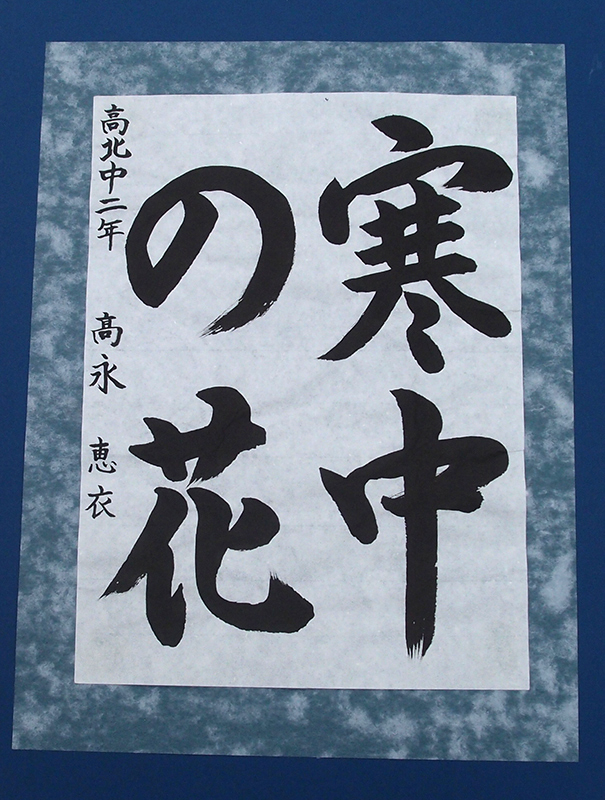 寒中
の花
高北中二年 髙永 恵衣